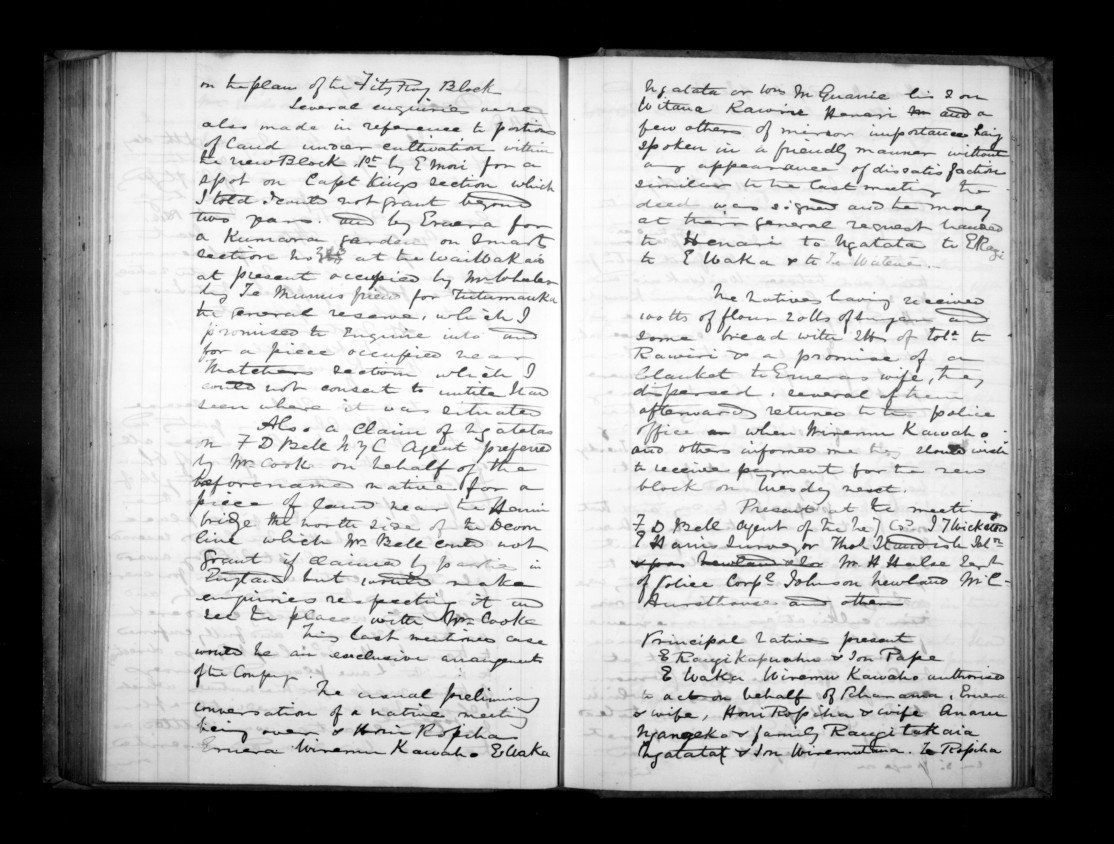 on the plan of the Fitz Roy Block
Several enquiries were
also made in reference to portions
of land under cultivation within
the new Block 1st by E Mori for a
spot on Capt Kings section which
I told I could not grant beyond
two years. and by Emera for
a Kumara garden on Smart
section No at the Waiwakaio
at present occupied by Mr Wheeler
by Te for Tutumauka
the general reserve, which I
promised to Enquire into and
for a piece occupied near
Thatchers section which I
could not consent to until I had
seen where it was situated
Also a Claim of Ngatatas
on F D Bell NZC Agent preferred
by Mr Cook on behalf of the
beforenamed native for a
piece of land near the Henui
bridge the north side of the Devon
line which Mr Bell could not
Grant if claimed by parties in
England but would make
enquiries respecting it and
see the place with Mr Cooke
This last mentioned case
would be an exclusive arrangement
of the Company. The usual preliminary
conversation of a native meeting
being over & Honi Ropiha
Emera Wiremu Kawaho E Waka
Ngatata or Wm McGuanie his son
Witana Rawiri Henari and a
few others of minor importance having
spoken in a friendly manner without
any appearance of dissatisfaction
similar to the last meeting the
deed was signed and the money
at their general request handed
to Henari to Ngatata to E Rangi
to E Waka & to Te Watena.
The Natives having received
100 lbs of flour 20 lbs of sugar and
some bread with of tob. to
Rawiri & a promise of a
blanket to Emeras wife, they
dispersed, several of them
afterwards returned to the police
office when Wiremu Kawaho
and others informed me they should wish
to receive payment for the new
block on Tuesday next.
Present at the meeting
F D Bell Agent of the NZ Co. J
E Harris Surveyor Thos Standish
M H Halse Sergt
of Police Corpl Johnson Newland
Hursthouse and others
Principal natives present
E Rangi Kapuahu & Son Pape
E Waka Wiremu Kawaho authorised
to act on behalf of Emera
& wife, Honi Ropiha & wife Anaru
Ngangeka & family Rangitakaia
Ngatata & Son Wiremutana. Te Ropiha